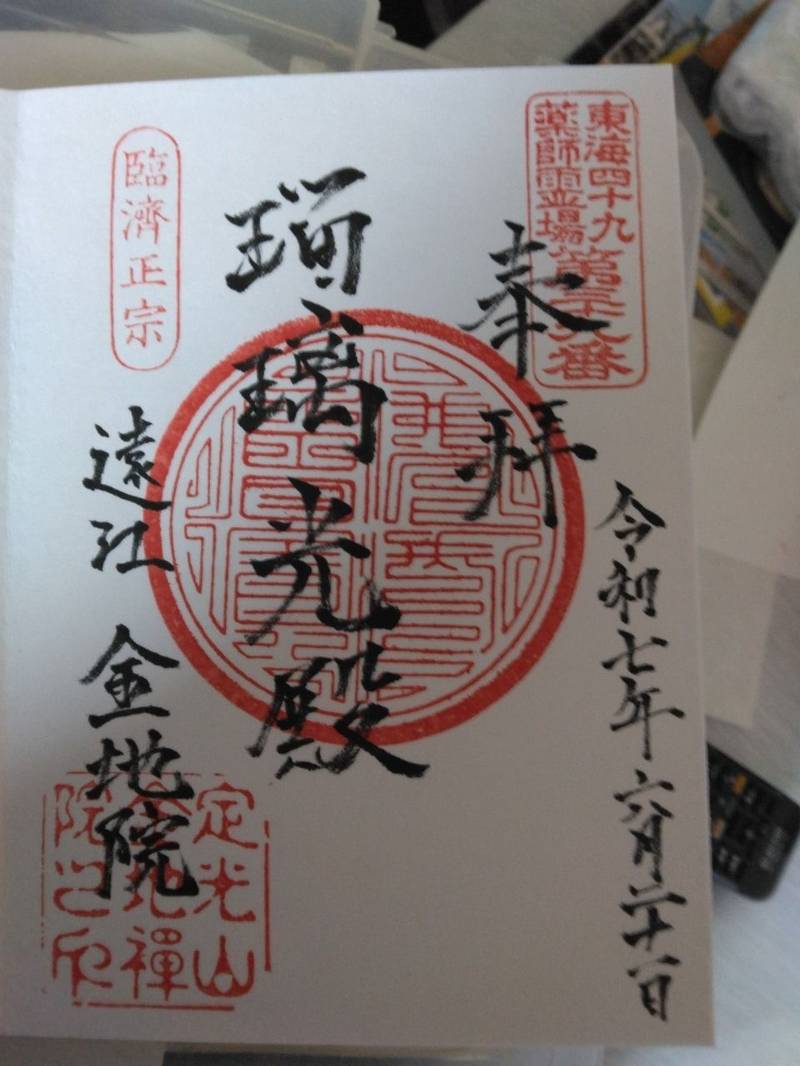 東海四十九
薬師霊場第三十九番
奉拝
令和七年六月二十一日
瑠璃光殿
臨済正宗
遠江 金地院
定光山
金地禅
院之印